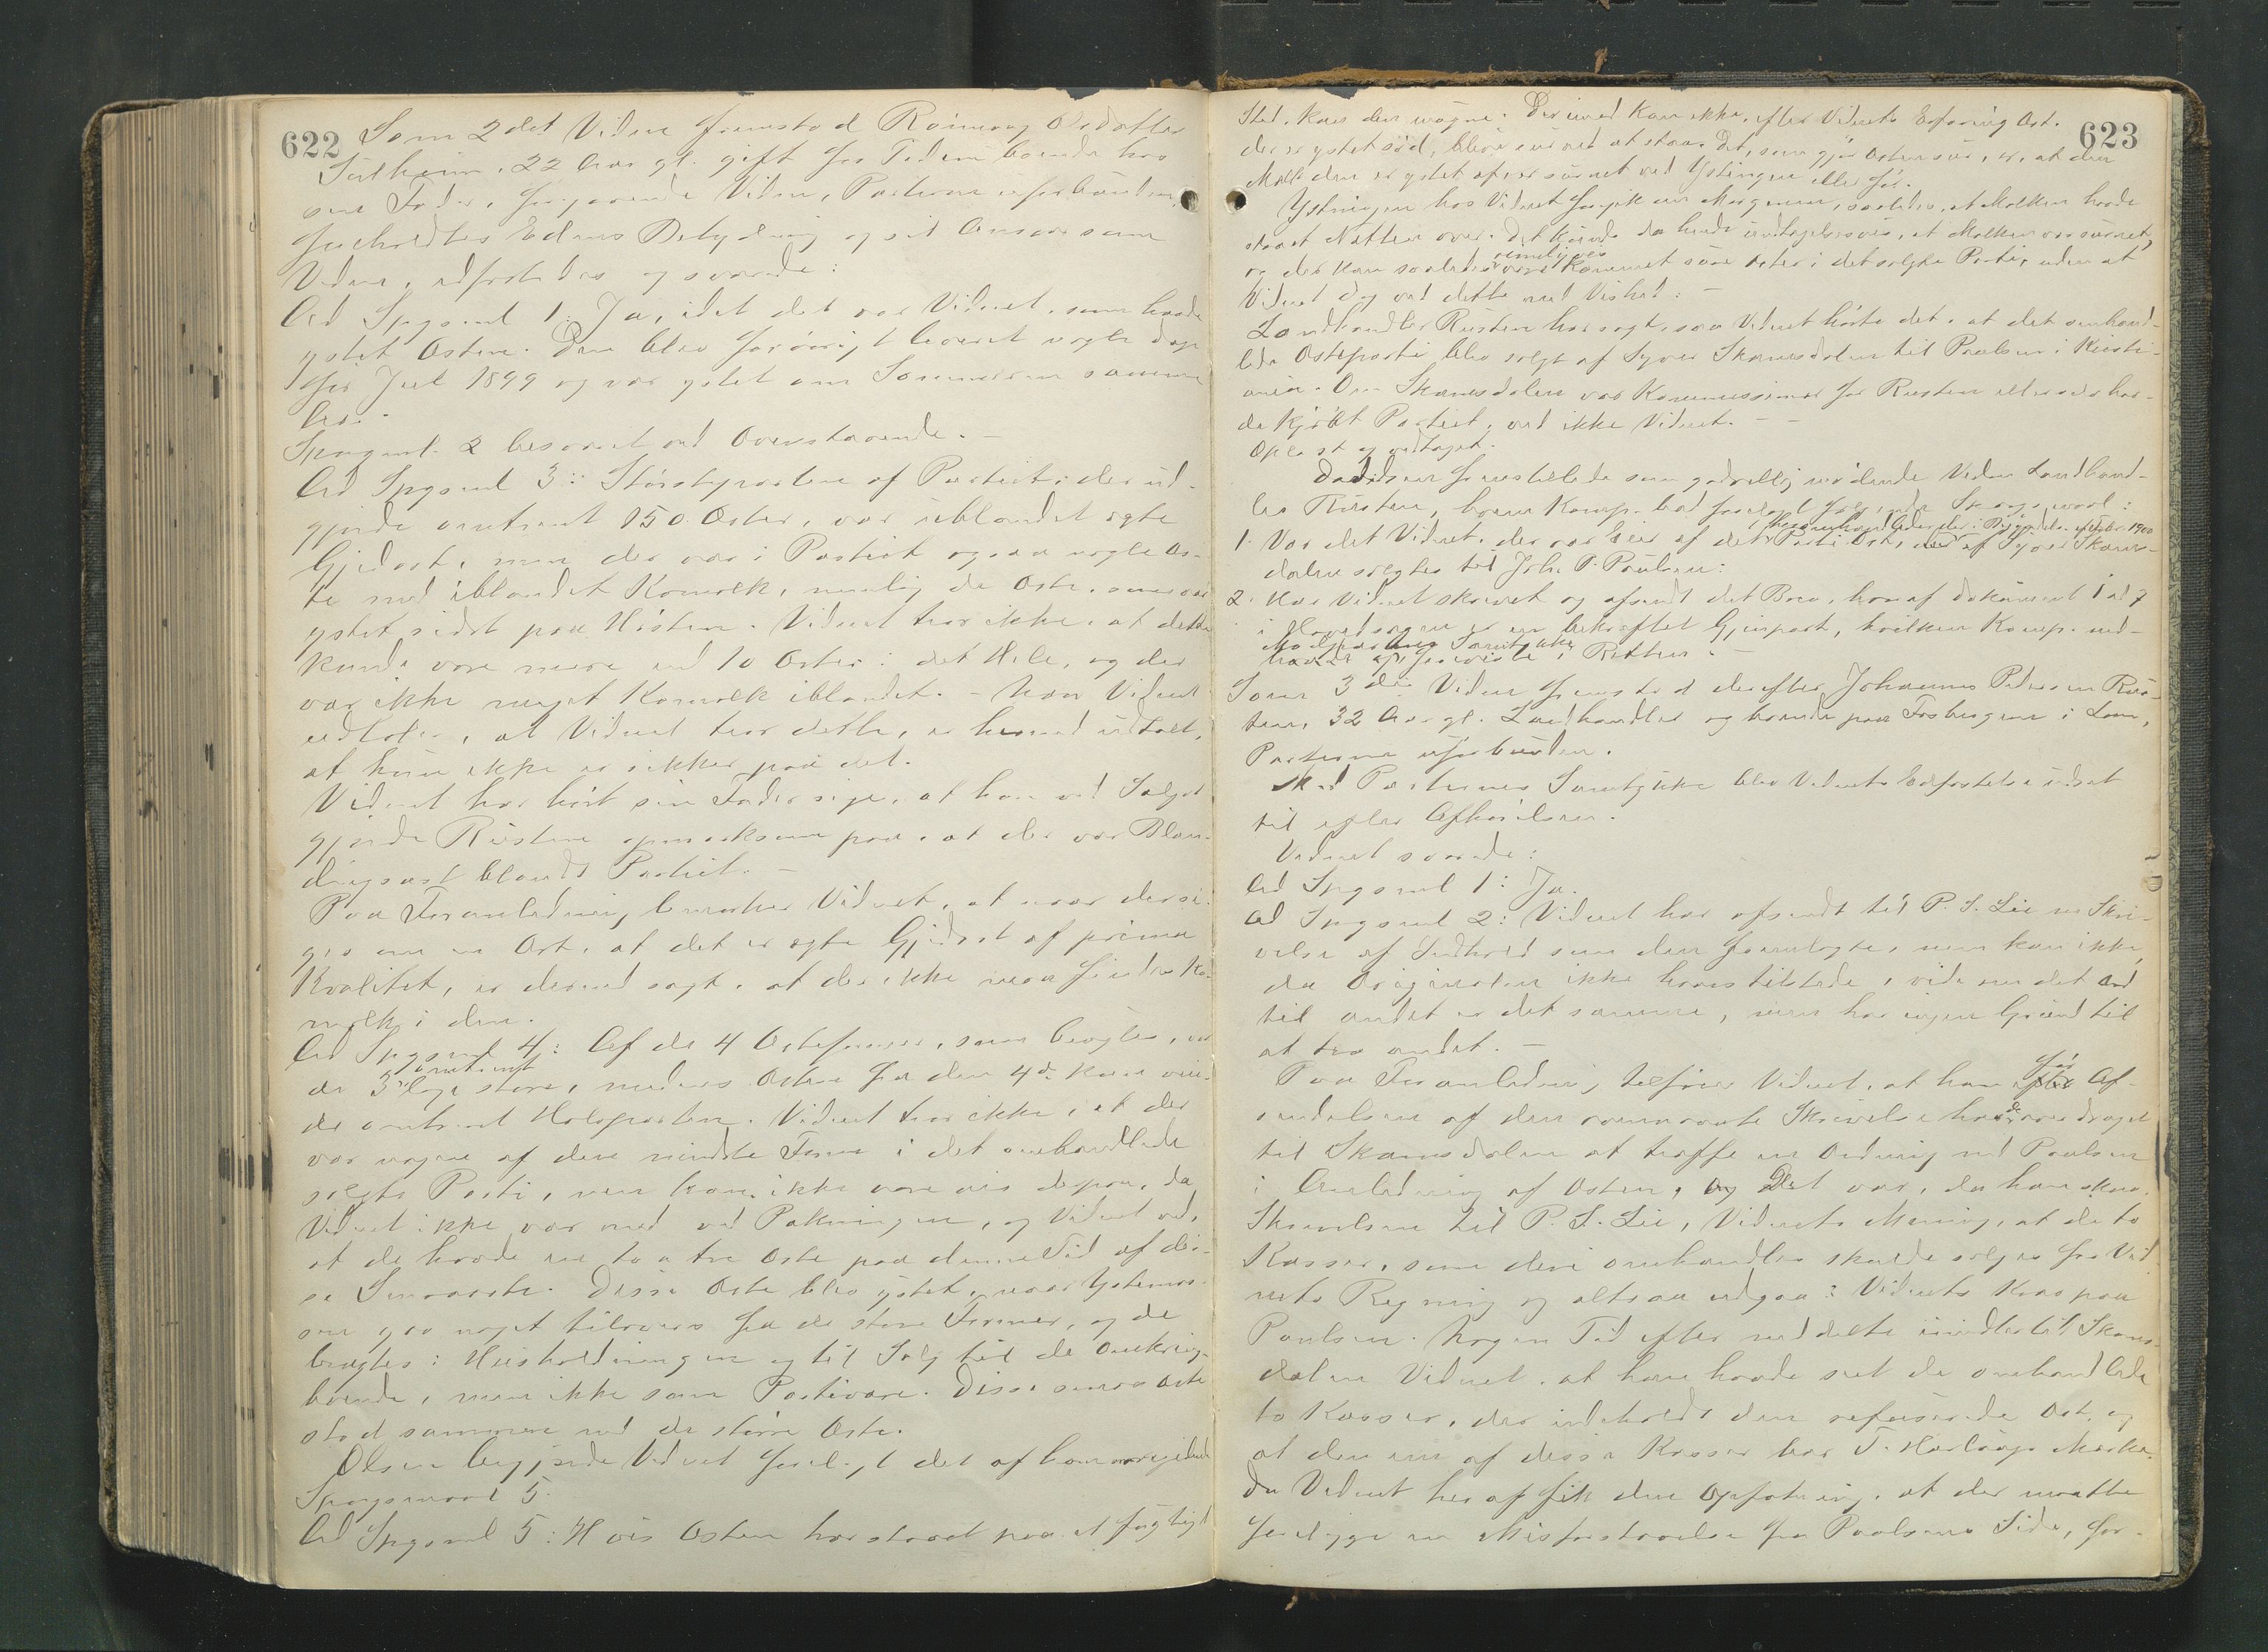 622
Som 2det Vidne fremstod Rønnaug Olsdatter
Sulheim, 22 Aar gl. gift for Tiden boende hos
sin Fader, forrige Vidne, Parterne uforbunden,
foreholdtes Edens Betydning og sit Ansvar som
Vidne, edfæstedes og svarede:
Ad Spgsml 1: Ja, idet det var Vidnet, som havde
ystet Osten. Den blev forøvrigt leveret nogle Dage
før Jul 1899 og var ystet om Sommeren samme
Aar.
Spørgsml. 2 besvaret ved Ovenstaaende. –
Ad Spgsml 3: Størsteparten af Partiet, der ud-
gjorde omtrent 150 Oster, var ublandet ægte
Gjedost, men der var i Partiet ogsaa nogle Os-
te med iblandet Komælk, nemlig de Oste, som var
ystet sidst paa Høsten. Vidnet tror ikke, at dette
kunde være mere end 10 Oster i det Hele, og der
var ikke meget Komælk iblandet. – Naar Vidnet
udtaler, at Vidnet tror dette, er hermed udtalt,
at hun ikke er sikker paa det.
Vidnet har hørt sin Fader sige, at han ved Salget
gjorde Rusten opmærksom paa, at der var Blan-
dingsost blandt Partiet. –
Paa Foranledning bemærker Vidnet, at naar der si-
ges om en Ost, at det er ægte Gjedost af prima
Kvalitet, er dermed sagt, at der ikke maa findes Ko-
mælk i den.
Ad Spgsml 4: Af de 4 Osteformer, som brugtes, var
de 3 omtrent lige store, medens Osten fra den 4de kun veie-
de omtrent Halvparten. Vidnet tror ikke, at der
var nogen af denne mindste Form i det omhandlede
solgte Parti, men kan ikke være vis derpaa, da
Vidnet ikke var med ved Pakningen, og Vidnet ved,
at de havde en to a tre Oste paa denne Tid af dis-
se Smaaoste. Disse Oste blev ystet, naar Ystemas-
sen gav noget tilovers fra de store Former, og de
brugtes i Husholdningen og til Salg til de Omkring-
boende, men ikke som Partivare. Disse smaa Oste
stod sammen med de større Oste.
Olsen begjærede Vidnet forelagt det af ham
Spørgsmaal 5.
Ad Spgsml 5: Hvis Osten har staaet paa et fugtigt
623
Sted, kan den mygne. Derimod kan ikke, efter Vidnets Erfaring Ost,
der er ystet sød, blive sur ved at staa. Det, som gjør Osten sur, er, at den
Mælk den er ystet af er surnet ved Ystingen eller før.
Ystningen hos Vidnet foregik om Morgenen, saaledes, at Mælken havde
staaet Natten over. Det kunde da hænde undtagelsesvis, at Mælken var surnet,
og der kan saaledes rimeligvis være kommet sure Oster i det solgte Parti, uden at
Vidnet dog ved dette med Vished. –
Landhandler Rusten har sagt, saa Vidnet hørte det, at det omhand-
lede Osteparti blev solgt af Syver Skamsdalen til Paulsen i Kristi-
ania. Om Skamsdalen var Kommissionær for Rusten eller selv hav-
de kjøbt Partiet, ved ikke Vidnet. –
Oplæst og vedtaget.
Davidsen fremstillede som godvillig mødende Vidne Landhand-
ler Rusten, hvem Komp. bad forelagt følgende Spørgsmaal:
1. Var det Vidnet, der var Eier af det heromhandlede, der i Begyndelsen af Febr. 1900 Parti Ost, der af Syver Skams-
dalen solgtes til Joh. P. Paulsen:
2. Har Vidnet skrevet og afsendt det Brev, hvoraf Dokument 1 ad 7
i Hovedsagen er en bekræftet Gjenpart, hvilken Komp. med
Modpartens Samtykke
foreviste i Retten. –
Som 3die Vidne fremstod derefter Johannes Pedersen Rus-
ten, 32 Aar gl. Landhandler og boende paa Fosbergene i Lom,
Parterne uforbunden.
Med Parternes Samtykke blev Vidnets Edfæstelse udsat
til efter Afhørelsen.
Vidnet svarede:
Ad Spgsml 1: Ja.
Ad Spgsml 2: Vidnet har afsendt til P. S. Lie en Skri-
velse af Indhold som den fremlagte, men kan ikke,
da Originalen ikke haves tilstede, vide om det Ord
til andet er det samme, men har ingen Grund til
at tro andet. –
Paa Foranledning tilføier Vidnet, at han før Af-
sendelsen af den omspurgte Skrivelse havde overdraget
til Skamsdalen at træffe en Ordning med Paulsen
i Anledning af Osten, Det var, da han skrev
Skrivelsen til P. S. Lie, Vidnets Mening, at de to
Kasser, som deri omhandles skulde sælges for Vid-
nets Regning og altsaa udgaa i Vidnets Krav paa
Paulsen. Nogen Tid efter meddelte imidlertid Skams-
dalen Vidnet, at han havde seet de omhandlede
to Kasser, der indeholdt den refuserede Ost, og
at den ene af disse Kasser bar T. Harlaugs Mærke.
Da Vidnet heraf fik den Opfatning, at der maatte
foreligge en Misforstaaelse fra Paulsens Side, for-